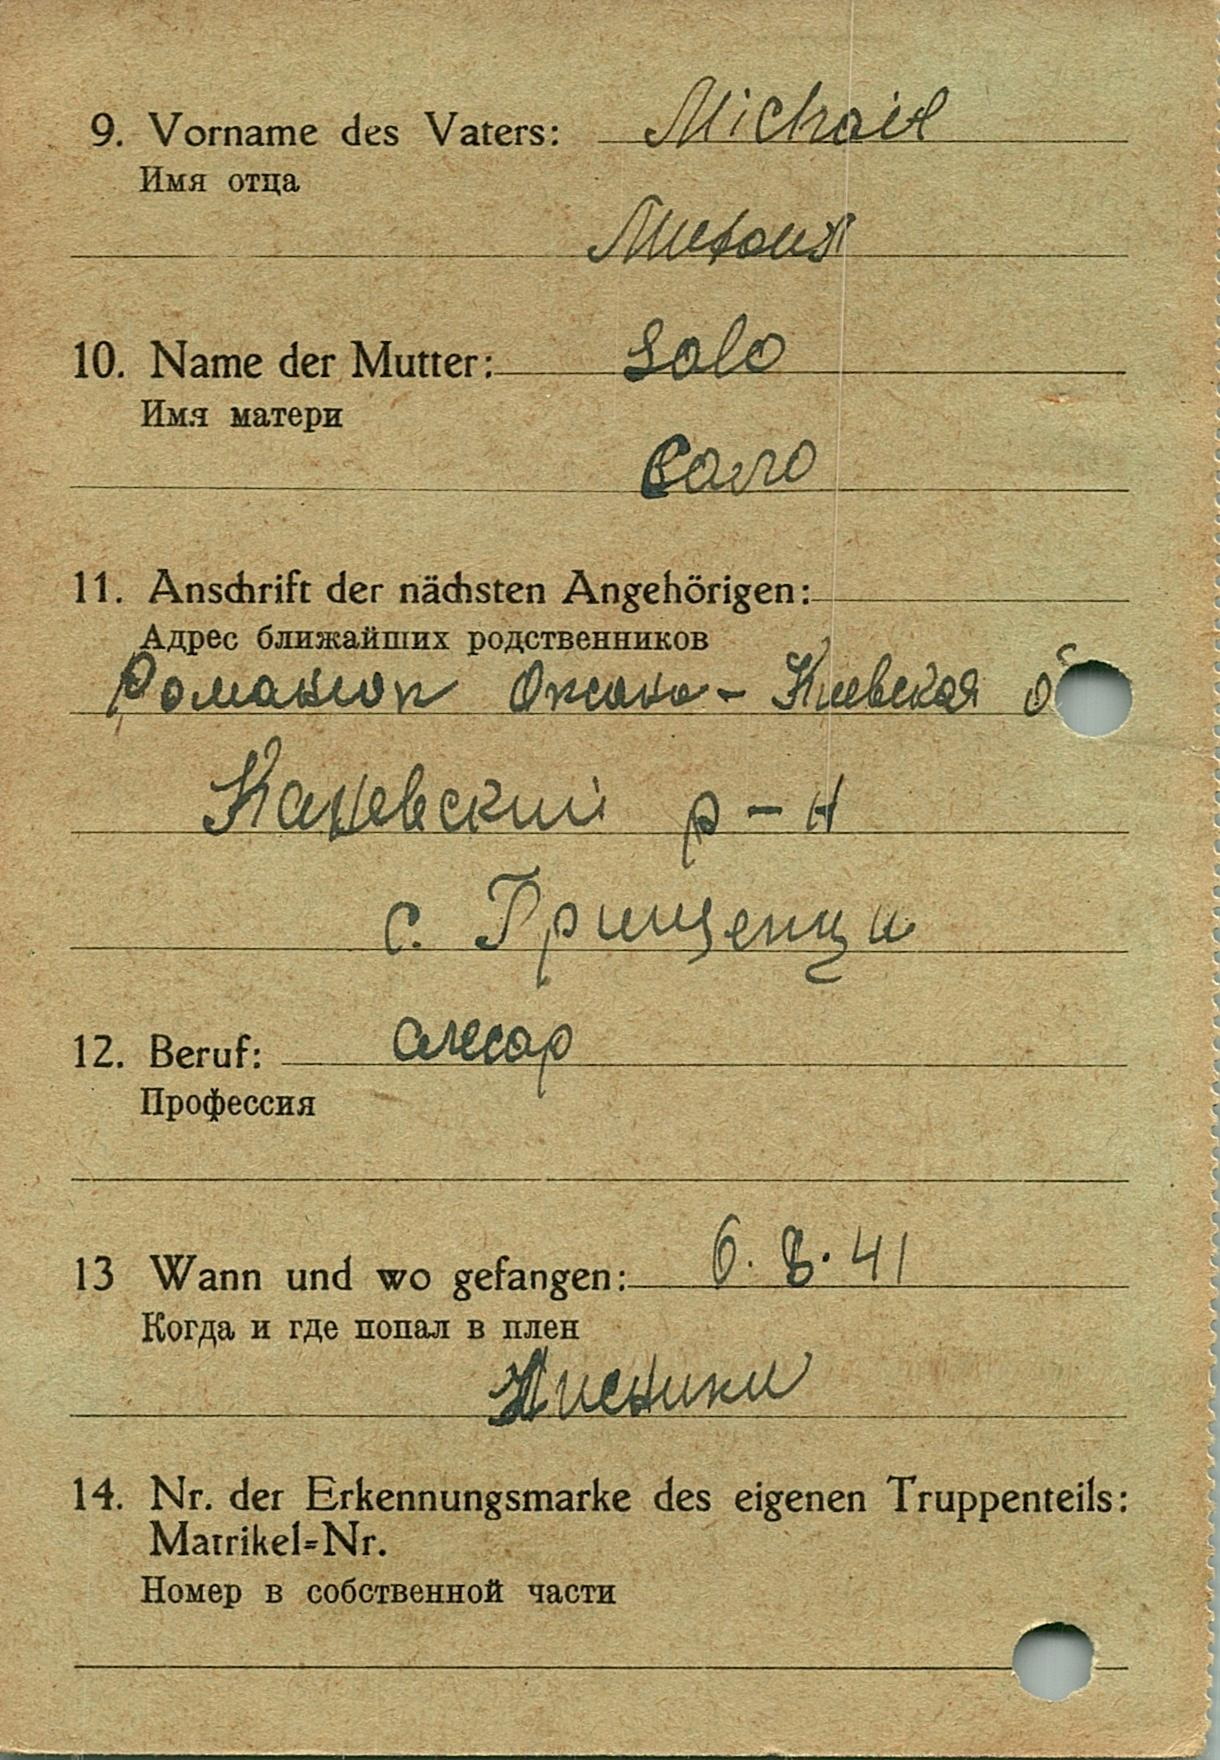 9. Vorname des Vaters: Michail
Имя отца
Михаил
10. Name der Mutter: Solo
Имя матери
Сало
11. Anschrift der nächsten Angehörigen:
Адрес ближайших родственников
Романюк Оксана - Киевская
Каневский р-н
с. Грищенци
12. Beruf: слесар
Профессия
13 Wann und wo gefangen: 6. 8. 41
Когда и где попал в плен
14. Nr. der Erkennungsmarke des eigenen Truppenteils:
Matrikel=Nr.
Номер в собственной части